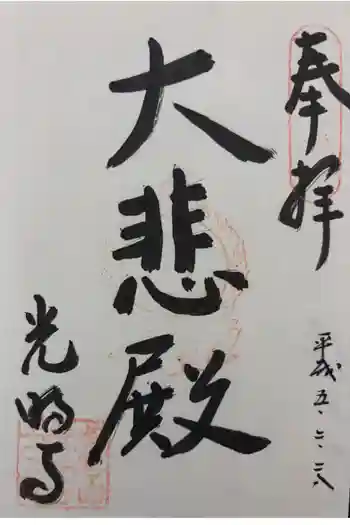 奉拝
平成五・二・二八
大悲殿
光明寺